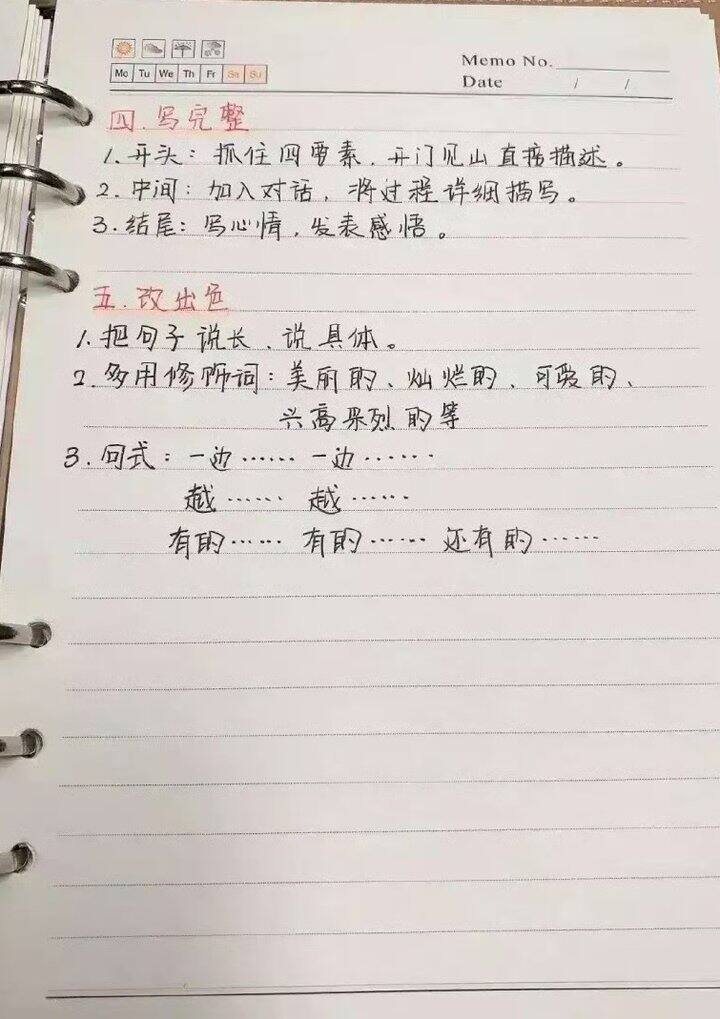 Memo No.
Mo Tu We Th Fr Sa Su
Date / /
四.写完整
1.开头：抓住四要素.开门见山直接描述。
2.中间：加入对话，将过程详细描写。
3.结尾：写心情，发表感悟。
五.改出色
1.把句子说长、说具体。
2.多用修饰词：美丽的、灿烂的、可爱的、
兴高采烈的等
3.句式：一边…… 一边……
越…… 越……
有的…… 有的…… 还有的……